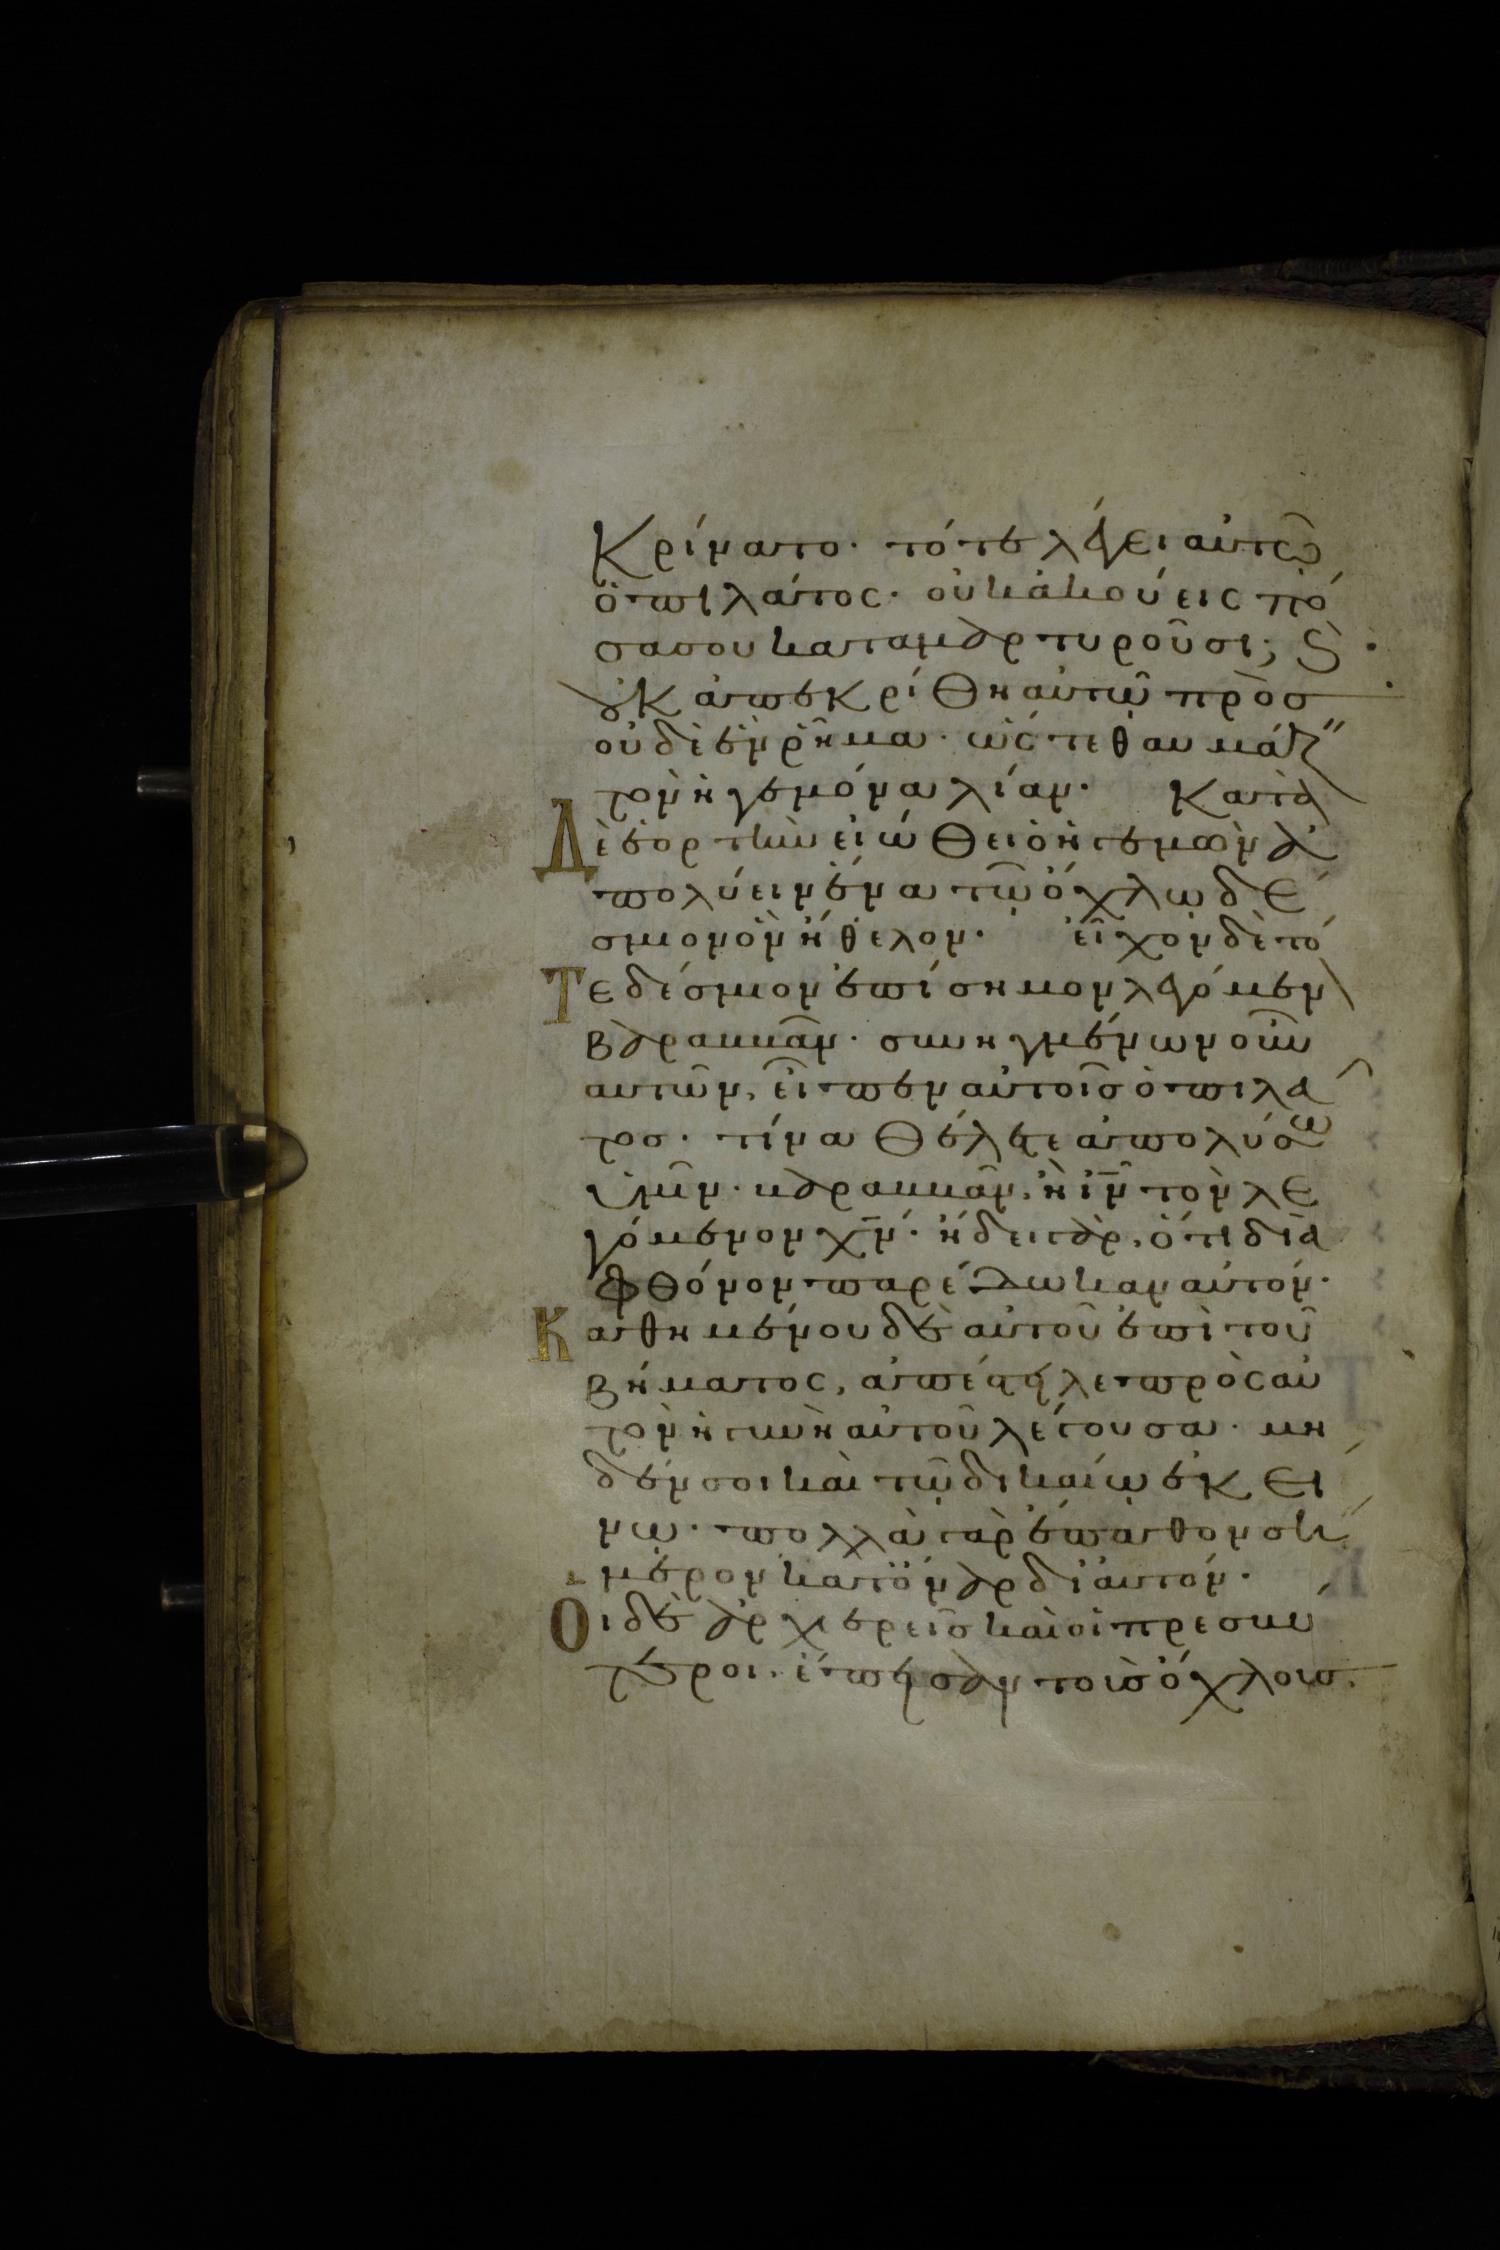 κρίνατο· τότε λέγει αὐτῶ
ὁ πιλάτος· οὐκ ἀκούεις πό
σα σου καταμαρτυροῦσι; (καὶ)
οὐκ ἀπεκρίθη αὐτῶ πρὸσ
οὐδὲ ἓν ῥῆμα· ὥςτε θαυμάζ(ειν)
τὸν ἡγεμόνα λίαν· Κατὰ
Δὲ ἑορτὴν εἰώθει ὁ ἡγεμὼν ἀ
πολύειν ἕνα τῶ ὄχλω δέ
σμιον ὃν ἤθελον· εἶχον δὲ τό
Τε δέσμιον ἐπίσημον λεγόμεν(ον)
βαραββᾶν· συνηγμένων οὖν
αυτῶν, εἶπεν αὐτοῖσ ὁ πιλᾶ
τοσ· τίνα θέλετε ἀπολύσω
ὑμῖν· βαραββᾶν, ἢ ιν τὸν λε
γόμενον χν· ἤδει γὰρ, ὅτι διὰ
φθόνον παρέδωκαν αὐτόν·
Καθημένου δὲ αὐτοῦ ἐπὶ τοῦ
βήματος, ἀπέστειλε πρὸς αὐ
τὸν ἡ γυνὴ αὐτοῦ λέγουσα· μη
δέν σοι καὶ τῶ δικαίω ἐκεί
νω· πολλὰ γὰρ ἔπαθον σή
μερον κατόναρ δι αὐτόν·
Οἱ δὲ ἀρχιερεῖσ καὶ οἱ πρεσβύ
τεροι, ἔπεισαν τοὺσ ὄχλουσ.